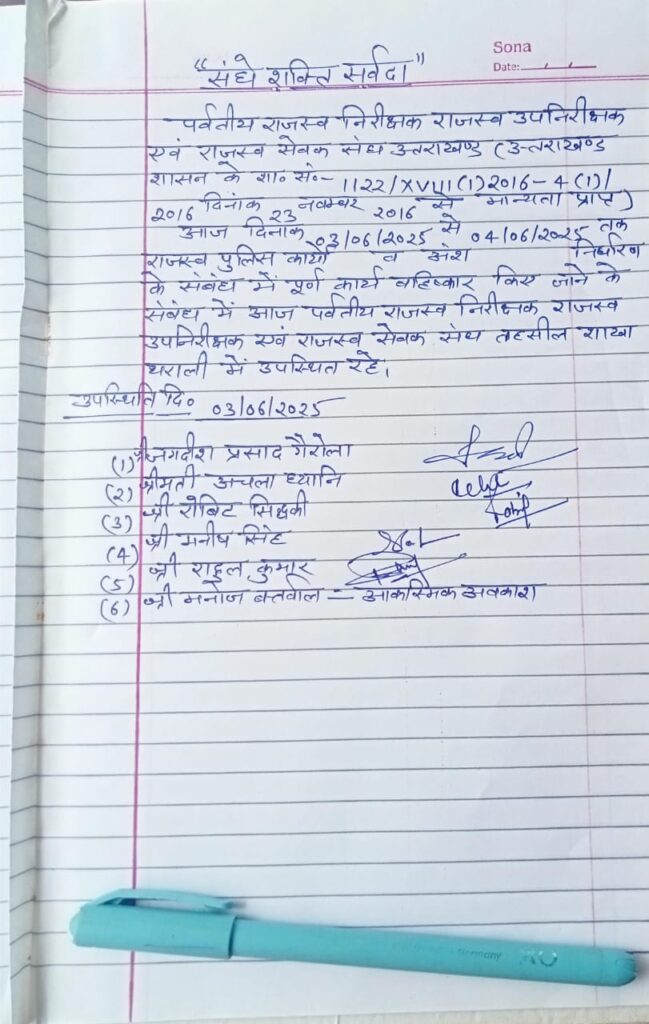 Sona
Date:
"संघे शक्ति सर्वदा"
पर्वतीय राजस्व निरीक्षक राजस्व उपनिरीक्षक
एवं राजस्व सेवक संघ उत्तराखण्ड (उत्तराखण्ड
शासन के शा० सं०- 1122/XVIII(1)2016-4(1)/
2016 दिनांक 23 नवम्बर 2016 से मान्यता प्राप्त)
आज दिनांक 03/06/2025 से 04/06/2025 तक
राजस्व पुलिस कार्यो व अंश निर्धारण
के संबंध में पूर्ण कार्य वहिष्कार किए जाने के
संबंध में आज पर्वतीय राजस्व निरीक्षक राजस्व
उपनिरीक्षक एवं राजस्व सेवक संघ तहसील शाखा
थराली में उपस्थित रहे।
उपस्थिति दि० 03/06/2025
(1) श्री जगदीश प्रसाद गैरोला
(2) श्रीमती अचला ध्यानि
(3) श्री रोबिट सिद्धकी
(4) श्री मनीष सिंह
(5) श्री राहुल कुमार
(6) श्री मनोज बर्तवाल — आकस्मिक अवकाश
Germany